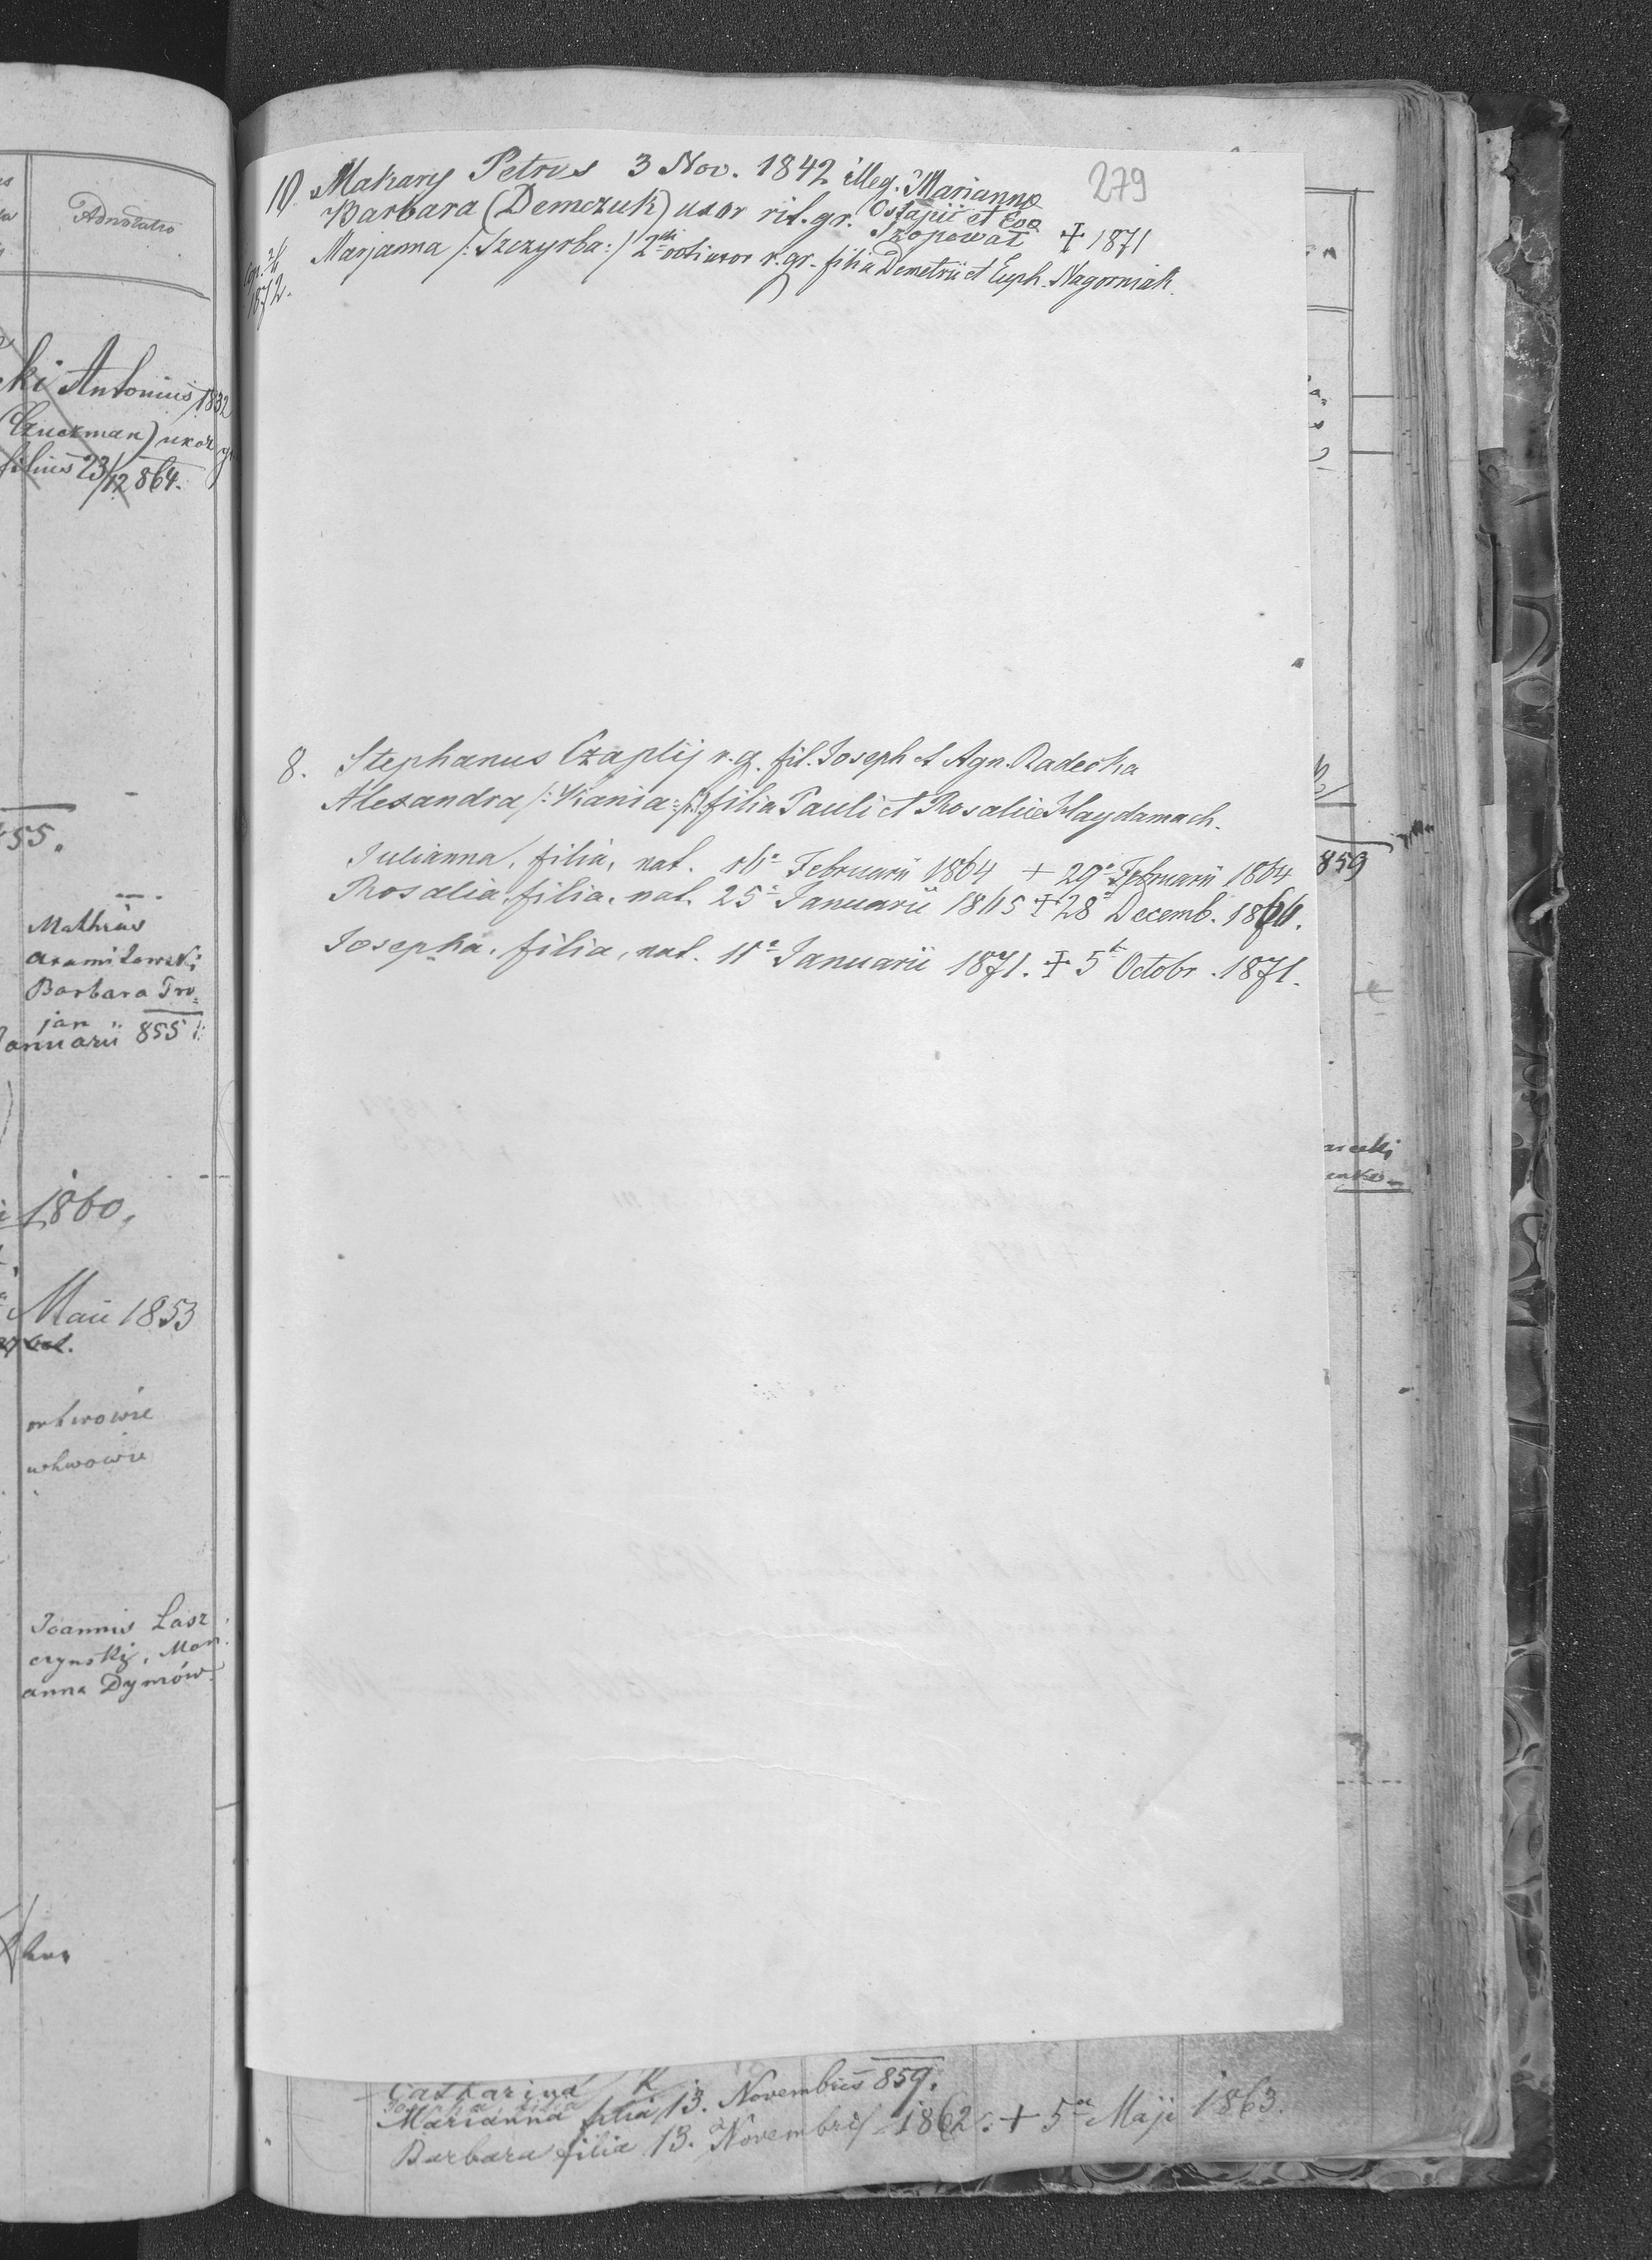 Adnotatio
ki Antonius 1832
(Czuczman) uxor gr
filius 23/12 864.
55.
Mathias
Barbara Tro=
jan
anuarii 855
1860,
Maii 1853
wLwowie
wLwowie
Joannis Lasz
czynski, Mari
anna Dymów
279
10. Makary Petrus 3 Nov. 1842 illeg. Marianna
Barbara (Demczuk) uxor rit. gr. Ostapii et Eva
Szopował + 1871
Marjanna /: Szczyrba :/ 2di voti uxor r. gr. filia Demetrii et Euph. Nagorniak.
1872.
8. Stephanus Czaplij r. g. fil. Joseph et Agn. Radecka
Alexandra /: Kania :/ filia Pauli et Rosaliae Haydamach.
Julianna, filia, nat. Februarii 1864 + 29a Februarii 1864
Rosalia, filia, nat. 25a Januarii 1865 + 28a Decemb. 1866.
Josepha, filia, nat. 11a Januarii 1871. + 5a Octobr. 1871.
859
Catharina
Marianna filia 13. Novembris 859.
Barbara filia 13. Novembris 1862. + 5a Maji 1863.